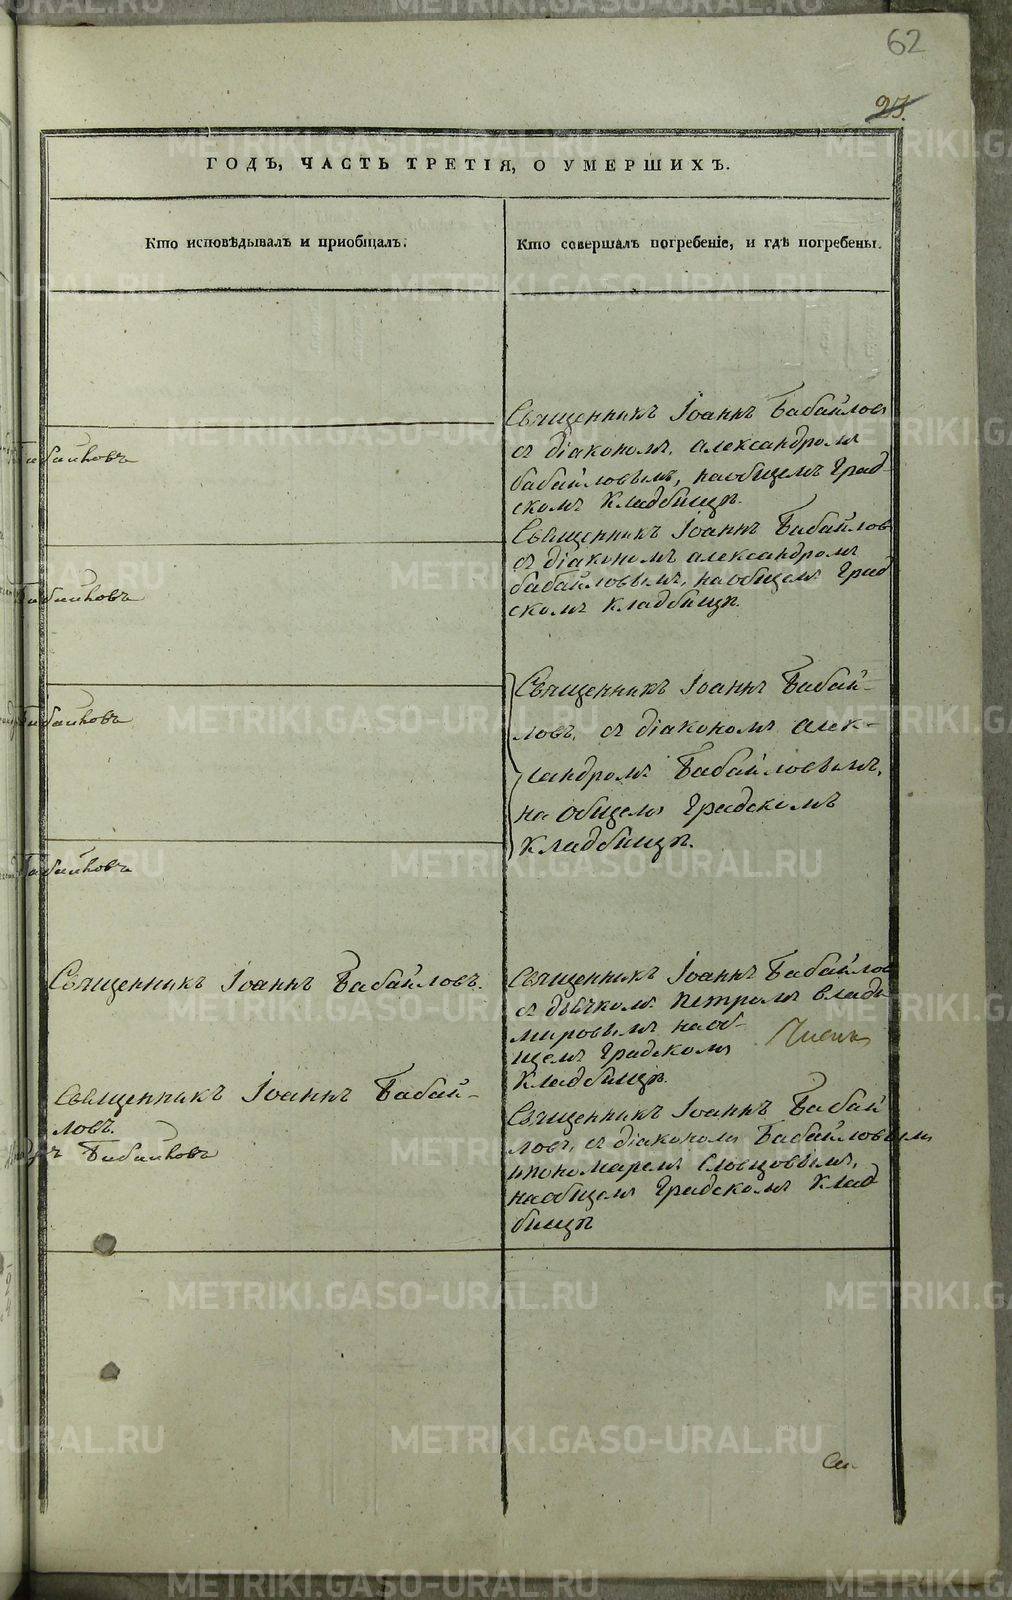 62
23.
ГОДЪ, ЧАСТЬ ТРЕТІЯ, О УМЕРШИХЪ.
Кто исповѣдывалъ и приобщалъ.
Кто совершалъ погребеніе, и гдѣ погребены.
Священникъ Іоаннъ Бабайловъ
съ діакономъ, александромъ
бабайловымъ, наобщемъ град-
скомъ кладбищѣ.
Бабайловъ
Священникъ Іоаннъ Бабайловъ
съ діакономъ александромъ
бабайловымъ, наобщемъ град
скомъ кладбищѣ.
Бабайловъ
Священникъ Іоаннъ Бабай-
ловъ, съ діакономъ алек-
сандромъ Бабайловымъ,
на общемъ градскомъ
кладбищѣ.
Бабайловъ
Бабайловъ
Священникъ Іоаннъ Бабайловъ.
Священникъ Іоаннъ Бабайловъ
съ дьячкомъ Петромъ влади
мировымъ наоб-
щемъ градскомъ
кладбищѣ.
Священникъ Іоаннъ Бабай-
ловъ.
Бабайловъ
Священникъ Іоаннъ Бабай
ловъ, съ діакономъ Бабайловымъ
ипономаремъ Словцовымъ,
наобщемъ градскомъ клад
бищѣ
METRIKI.GASO-URAL.RU